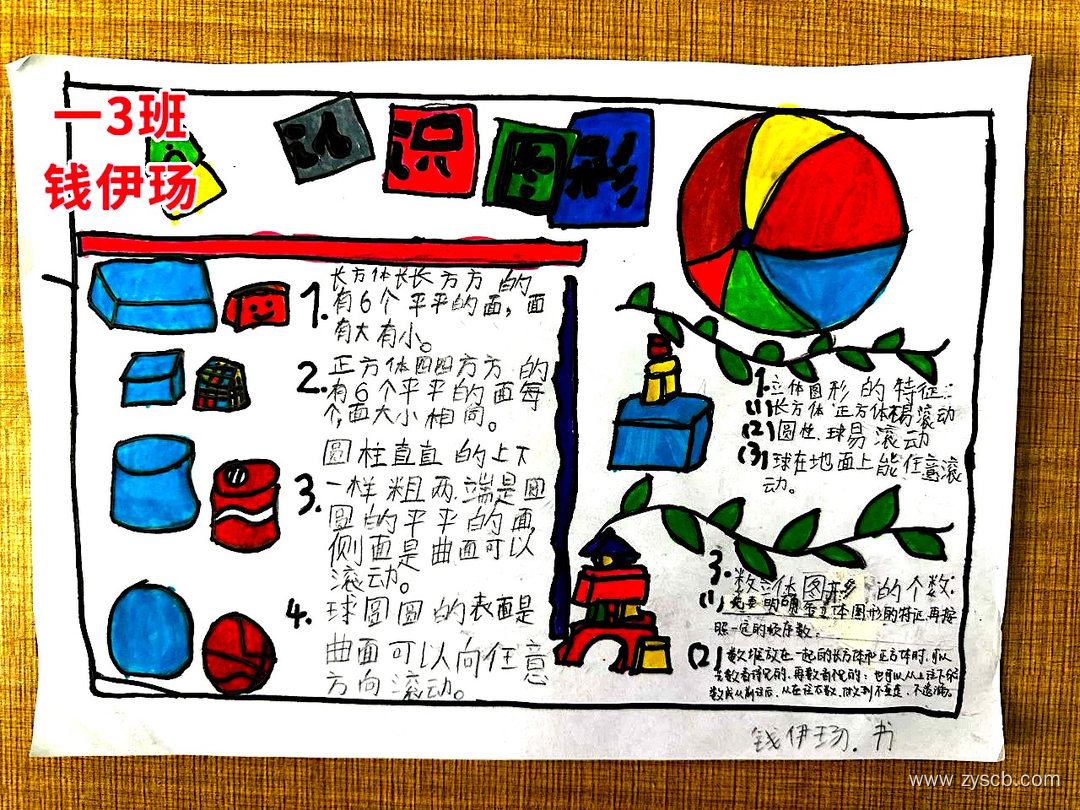 一3班
钱伊玚
认识图形
1.长方体长长方方的
有6个平平的面，面
有大有小。
2.正方体四四方方的
有6个平平的面每
个面大小相同。
圆柱直直的上下
3.一样粗两端是圆
圆的平平的面
侧面是曲面可以
滚动。
4.球圆圆的表面是
曲面可以向任意
方向滚动。
1.立体图形的特征：
(1)长方体 正方体易滚动
(2)圆柱、球易滚动
(3)球在地面上能任意滚
动。
3.数立体图形的个数：
(1)先要明确立体图形的特征再按
照一定的顺序数。
(2)数堆放在一起的长方体和正方体时，可以
先数看得见的，再数看不见的；也可以从上往下
数或从前往后，从左往右数，做到不重复，不遗漏。
钱伊玚．书
www.zyscb.com